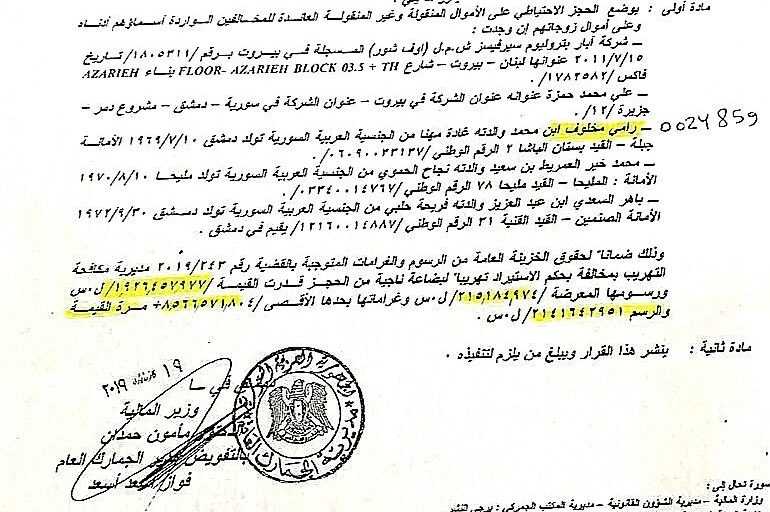 مادة أولى : يوضع الحجز الاحتياطي على الأموال المنقولة وغير المنقولة العائدة للمخالفين الواردة أسماؤهم أدناه
وعلى أموال زوجاتهم إن وجدت :
ـ شركة آبار بتروليوم سيرفيسز ش.م.ل (أوف شور) المسجلة في بيروت برقم /١٨٠٥٣١١/ تاريخ
٢٠١١/٧/١٥ عنوانها لبنان – بيروت – شارع FLOOR- AZARIEH BLOCK 03.5 + TH بناء AZARIEH
فاكس /١٧٨٢٥٨٢/.
ـ علي محمد حمزة عنوانه عنوان الشركة في بيروت – عنوان الشركة في سورية – دمشق – مشروع دمر –
جزيرة /١٢/.
ـ رامي مخلوف ابن محمد والدته غادة مهنا من الجنسية العربية السورية تولد دمشق ١٩٦٩/٧/١٠ الأمانة
0024859
جبلة – القيد بستان الباشا ٢ الرقم الوطني /٠٦٠٩٠٠٢٣١٣٧/.
ـ محمد خير العمريط بن سعيد والدته نجاح الحموي من الجنسية العربية السورية تولد مليحا ١٩٧٠/٨/١٠
الأمانة : المليحا – القيد مليحا ٧٨ الرقم الوطني /٠٣٣٤٠٠١٤٧٦٧/.
ـ باهر السعدي ابن عبد العزيز والدته فريحة حلبي من الجنسية العربية السورية تولد دمشق ١٩٧٢/٩/٣٠
الأمانة الصنمين – القيد القنية ٣١ الرقم الوطني /١٢١٦٠٠١٤٨٨٧/ يقيم في دمشق .
وذلك ضماناً لحقوق الخزينة العامة من الرسوم والغرامات المتوجبة بالقضية رقم ٢٠١٩/٢٤٣ مديرية مكافحة
التهريب بمخالفة بحكم الاستيراد تهريباً لبضاعة ناجية من الحجز قدرت القيمة /١,٩٢٦٤٥٧٩٧٧/ ل.س
ورسومها المعرضة /٢١٥,١٨٤٩٧٤/ ل.س وغراماتها بحدها الأقصى /٨,٥٦٦٥٧١,٨٠٤+ مرة القيمة
والرسم ٢١٤١٦٤٢٩٥١/ ل.س .
مادة ثانية : ينشر هذا القرار ويبلغ من يلزم لتنفيذه .
في ١٩ ٢٠١٩
وزير المالية
مأمون حمدان
بالتفويض مدير الجمارك العام
فواز أسعد أسعد
صورة تحال إلى :
وزارة المالية – مديرية الشؤون القانونية – مديرية المكتب الجمركي : يرجى للنشر